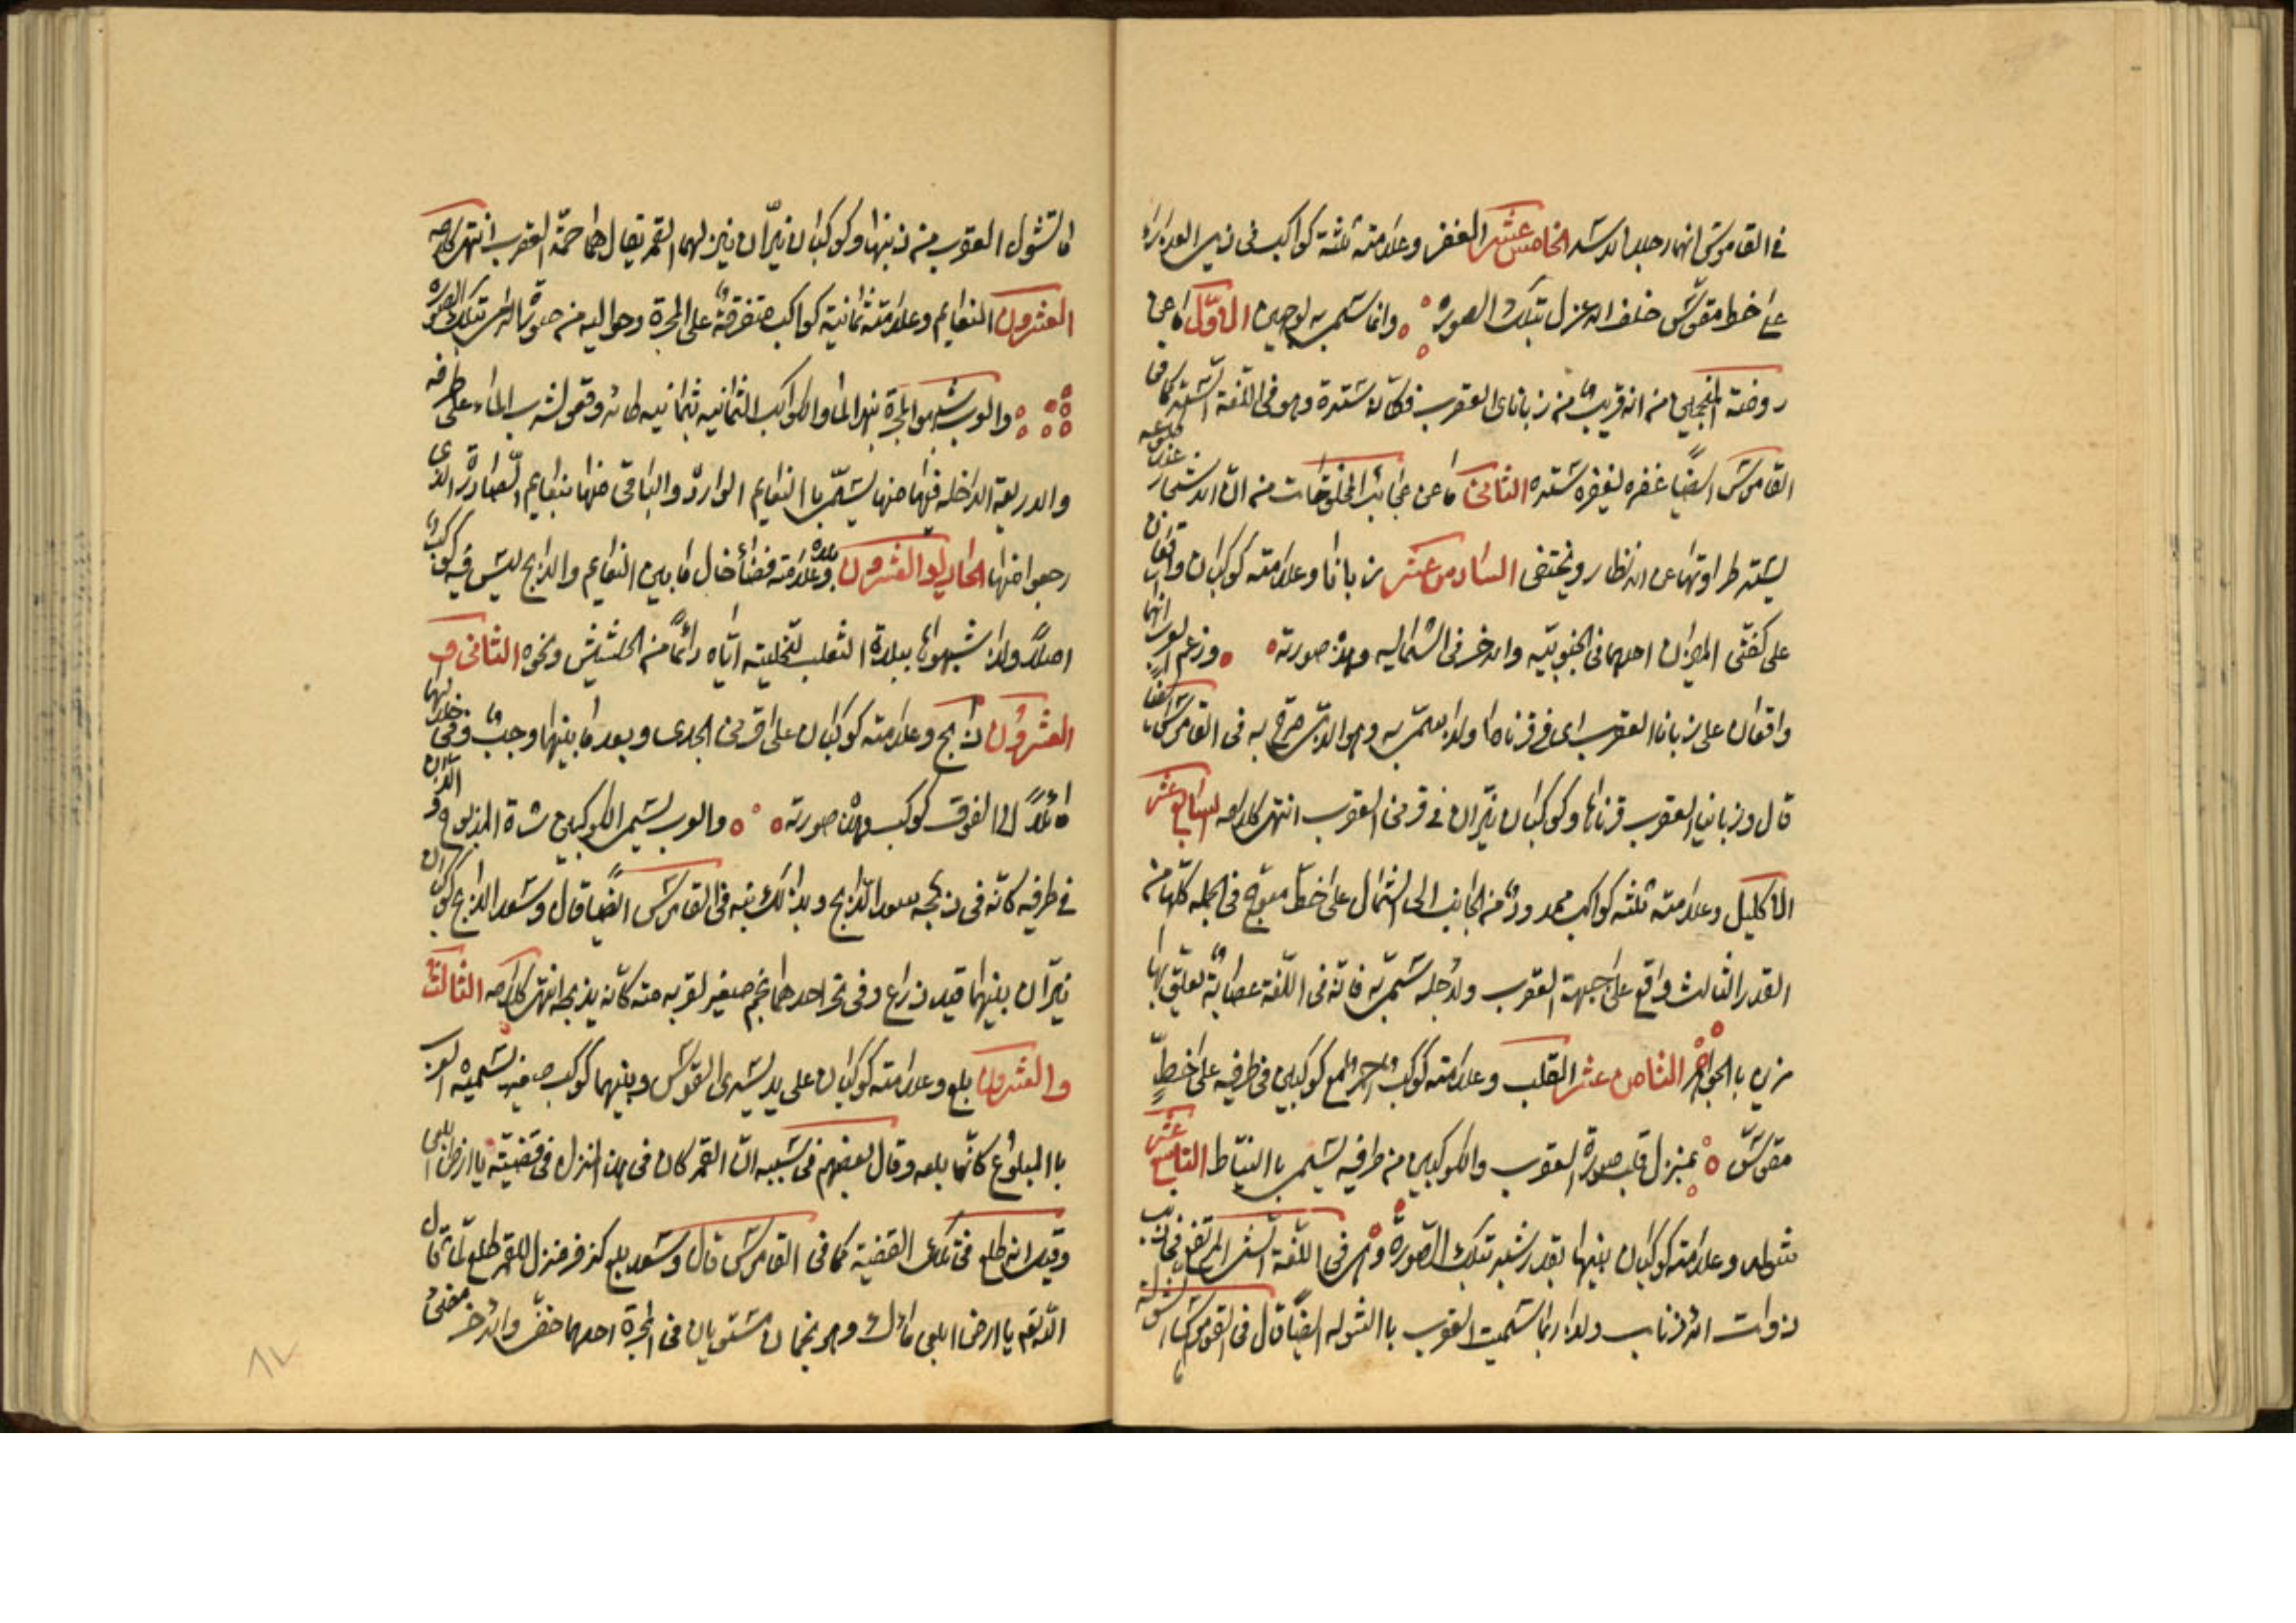 في القاموس انهما رجلا الاسد الخامس عشر الغفر وعلامته ثلثة كواكب في ذيل العذراء
على خط مقوس خلف الاعزل بتلك الصورة وانما سمى به لوجهين الاول ما عن
روضة المنجمين من انه قريب من زبانى العقرب فكانه ستره وهو في اللغة الستر كما في
القاموس ايضا غفره يغفره ستره الثاني ما عن عجائب المخلوقات من ان الاشجار عند طلوعه
يستر طراوتها عن الانظار ويختفى السادس عشر زبانا وعلامته كوكبان واقعان
على كفتى الميزان احدهما في الجنوبية والاخر في الشمالية وهذه صورته وزعم العرب انهما
واقعان على زبانا العقرب اى في قرناها ولذا سمى به وهو الذى صرح به في القاموس ايضا
قال وزبانيا العقرب قرناها وكوكبان نيران في قرنى العقرب انتهى كلامه السابع عشر
الاكليل وعلامته ثلثه كواكب ممدودة من الجانب الى الشمال على خط معوج في الجملة كلها من
القدر الثالث واقع على جبهة العقرب ولاجله سمى به فانه في اللغة عصابة تعلق بها
مزين بالجواهر الثامن عشر القلب وعلامته كوكب احمر المع كوكبين في طرفيه على خط
مقوس بمنزل قلب صورة العقرب والكوكبين من طرفيه يسمى با النياط التاسع عشر
شوله وعلامته كوكبان بينهما بقدر شبر بتلك الصورة وهى في اللغة
ذوات الاذناب ولذا ربما سميت العقرب با الشوله ايضا قال في القاموس الشولة
ما تشول العقرب من ذنبها وكوكبان نيران ينزلهما القمر يقال لهما حمة العقرب انتهى كلامه
العشرون النعايم وعلامته ثمانية كواكب متفرقة على المجرة وحواليه من صورة الرامى بتلك الصورة
والعرب شبهوا المجرة بنهر الماء والكواكب الثمانية بثمانيه طائر وقعو لشرب الماء على طرفه
والاربعة الداخلة فيها منها يسمى با النعايم الوارد والباقى منها بنعايم الصادر الذى
رجعوا منها الحادى والعشرون بلده وعلامته فضاء خال ما بين النعايم والذابح ليس فيه كوكب
اصلا ولذا شبهوها ببلدة الثعلب لتخليته اياه دائما من الحشيش ونحوه الثانى و
العشرون ذابح وعلامته كوكبان على قرنى الجدى وبعد ما بينهما وجب وفى خلالهما
مائلا الى الفوق كوكب وهذه صورته والعرب يسمى الكوكبين شاة المذبوح و الذان
في طرفيه كانه في ذبحه سعد الذابح وبذلك نبه في القاموس ايضا قال وسعد الذابح كوكبان
نيران بينهما قيد ذراع وفى نحر احدهما نجم صغير لقربه منه كانه يذبحه انتهى كلامه الثالث
والعشرون بلع وعلامته كوكبان على يد يسرى القوس وبينهما كوكب صغير تسميه العرب
با المبلوع كانما بلعه وقال بعضهم في سببه ان القمر كان في هذا المنزل في قضية يا ارض ابلعى
وقيل انه طلع في تلك القضية كما في القاموس قال وسعد بلع كزفر منزل للقمر طلع لما قال
الله تعم يا ارض ابلعى مائك وهو نجمان مستويان في المجرة احدهما خفى والاخر مضئ